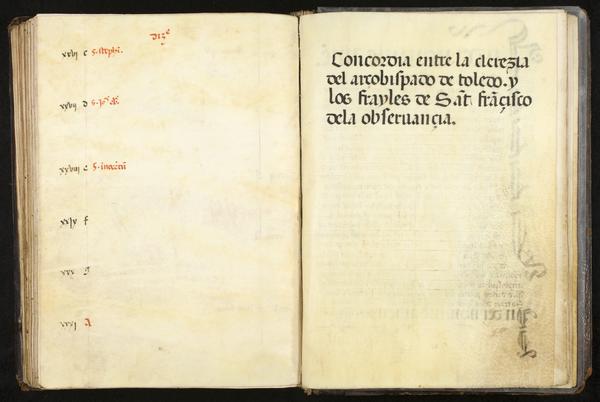 xxvj c S. steph̃i.
xxvij d
xxviij e
xxix f
xxx g
xxxj A
Concordia entre la clerezia
del arçobispado de toledo. y
los frayles de Sãt frãçisco
dela obseruançia.